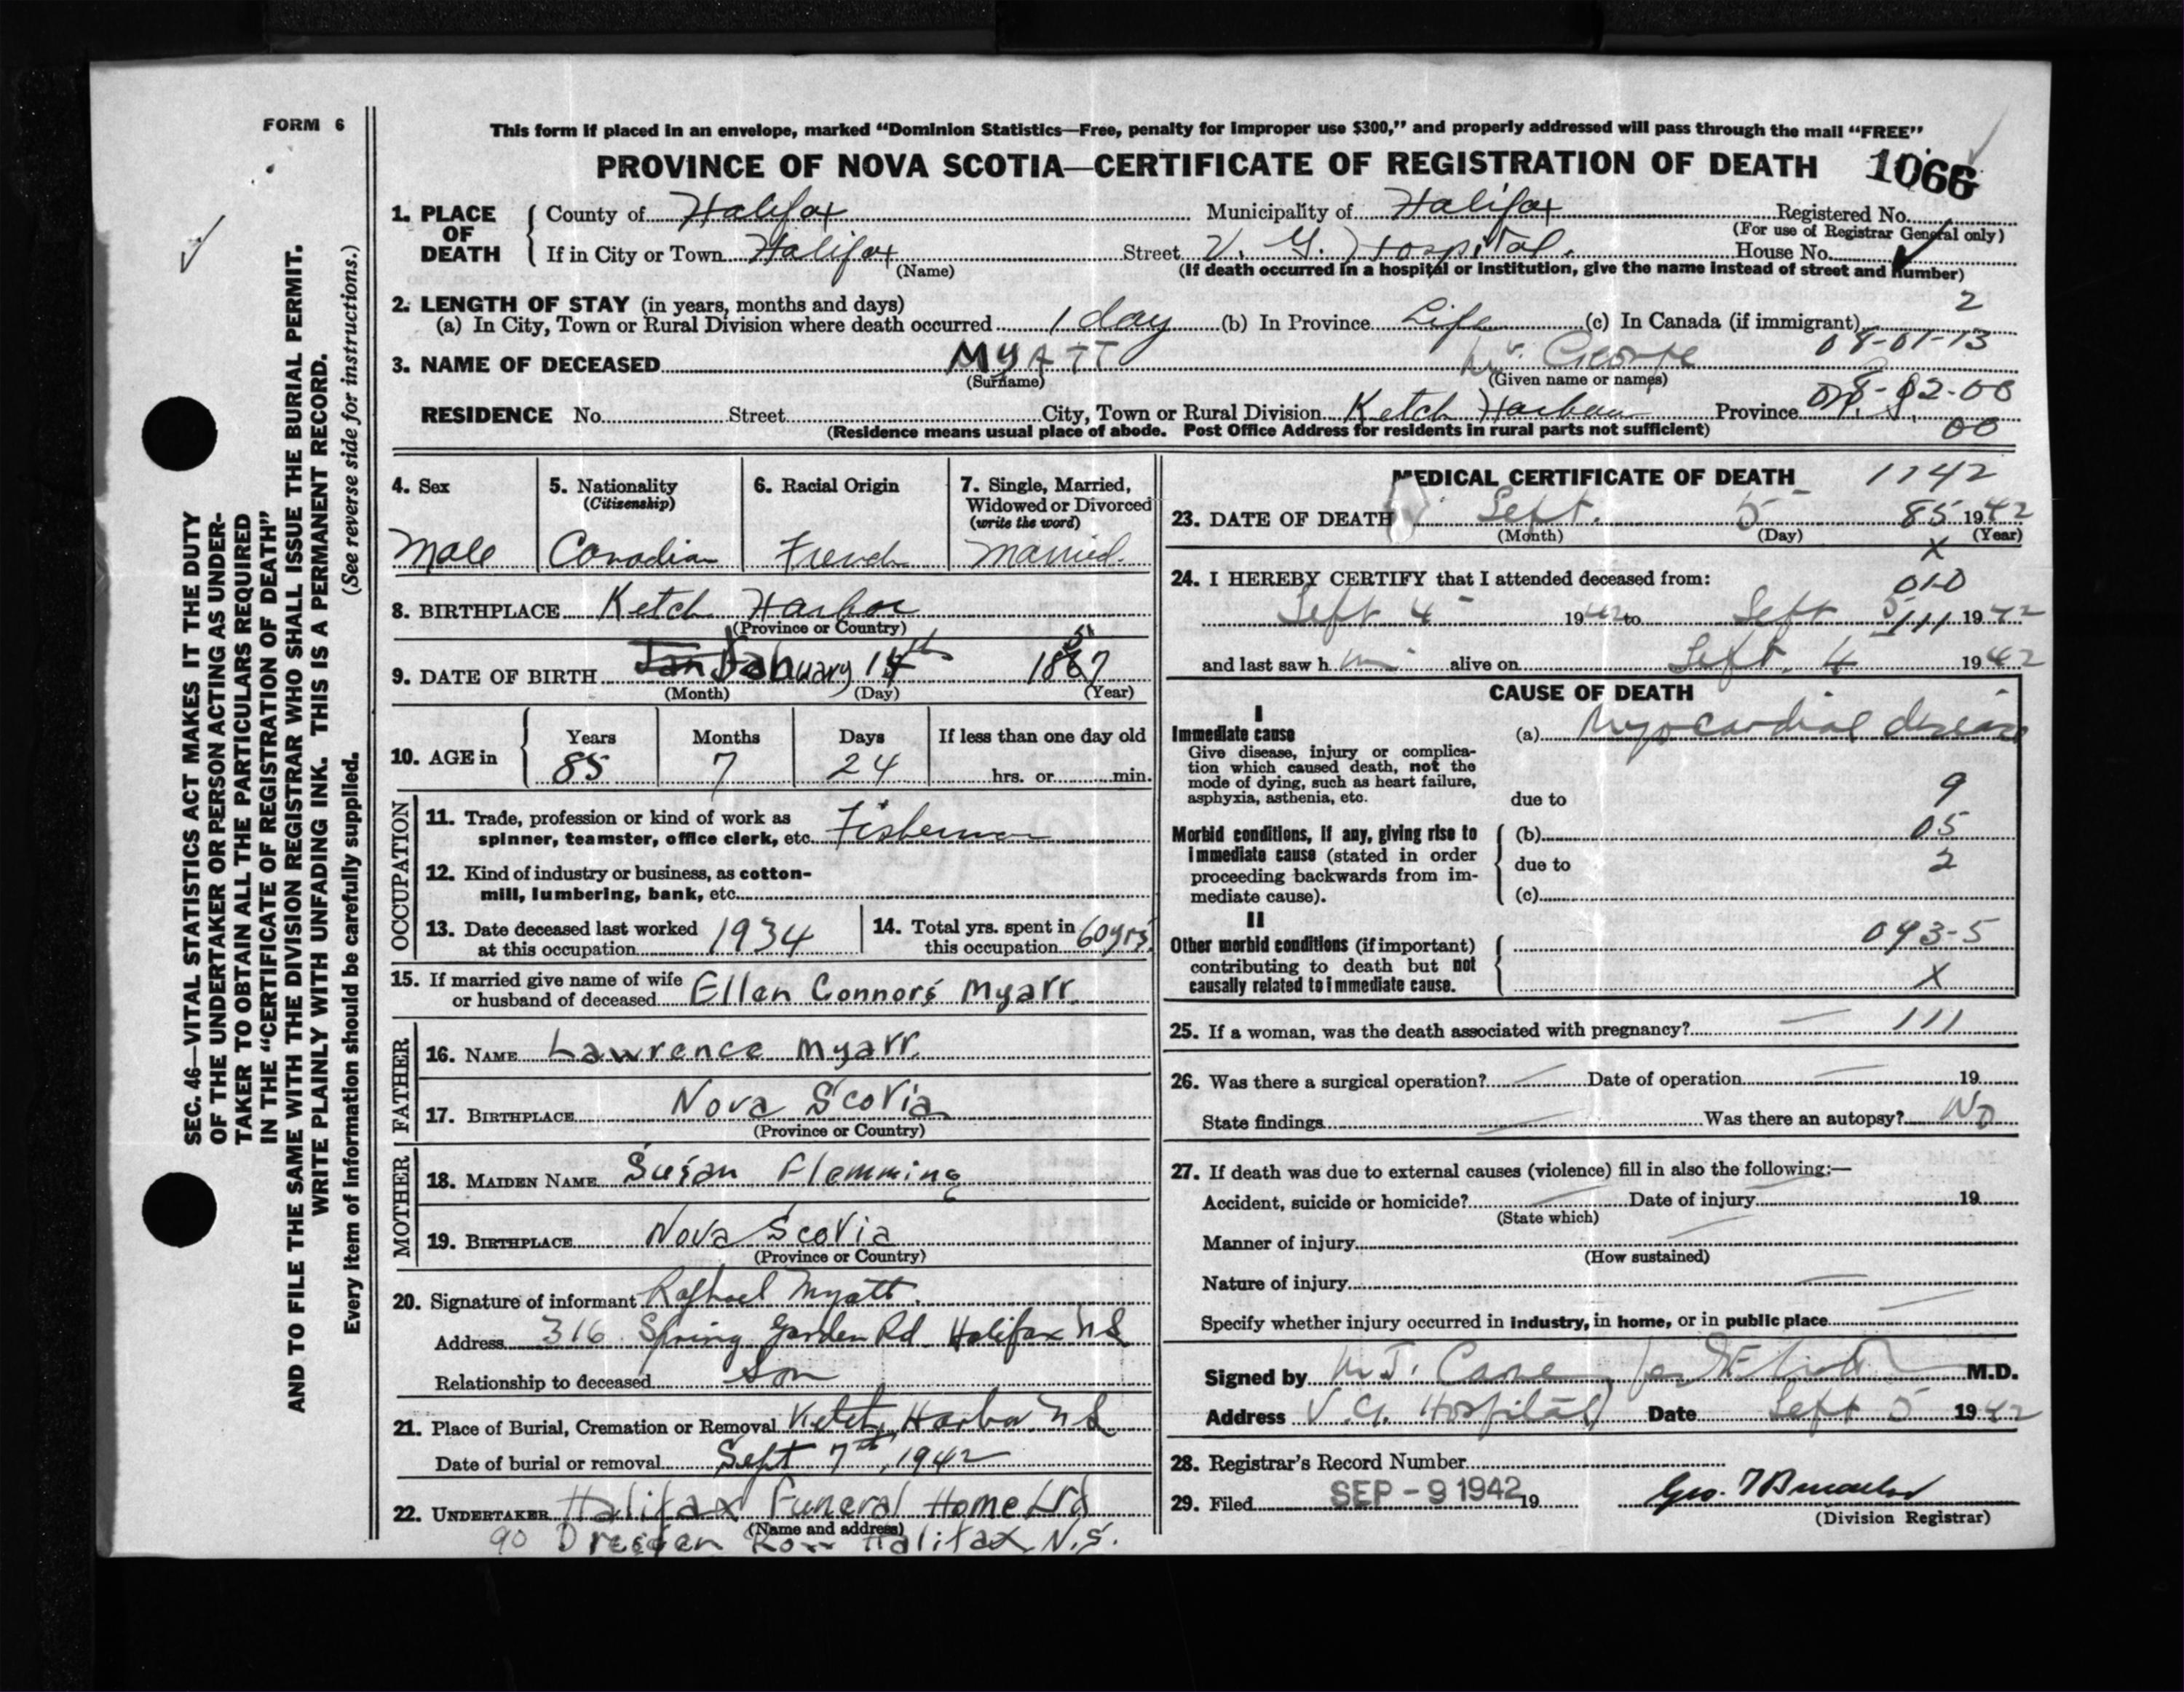 FORM 6
This form if placed in an envelope, marked “Dominion Statistics—Free, penalty for improper use $300,” and properly addressed will pass through the mail “FREE”
PROVINCE OF NOVA SCOTIA—CERTIFICATE OF REGISTRATION OF DEATH 1066
1. PLACE OF DEATH
County of Halifax Municipality of Halifax Registered No.
(For use of Registrar General only)
If in City or Town Halifax Street V. G. Hospital. House No.
(Name) (If death occurred in a hospital or institution, give the name instead of street and number)
2. LENGTH OF STAY (in years, months and days) 2
(a) In City, Town or Rural Division where death occurred 1 day (b) In Province Life (c) In Canada (if immigrant)
08-01-13
3. NAME OF DECEASED MYATT Mr. George
(Surname) (Given name or names)
RESIDENCE No. Street City, Town or Rural Division Ketch Harbour Province N. S. 08-02-00
(Residence means usual place of abode. Post Office Address for residents in rural parts not sufficient) 00
4. Sex Male
5. Nationality (Citizenship) Canadian
6. Racial Origin French
7. Single, Married, Widowed or Divorced (write the word) Married.
8. BIRTHPLACE Ketch Harbor
(Province or Country)
9. DATE OF BIRTH January 1867 5
(Month) (Day) (Year)
10. AGE in Years 85 Months 7 Days 24 If less than one day old hrs. or min.
OCCUPATION
11. Trade, profession or kind of work as
spinner, teamster, office clerk, etc. Fisherman
12. Kind of industry or business, as cotton-
mill, lumbering, bank, etc.
13. Date deceased last worked
at this occupation 1934
14. Total yrs. spent in
this occupation 60 yrs.
15. If married give name of wife
or husband of deceased Ellen Connors Myatt
FATHER
16. NAME Lawrence Myatt
17. BIRTHPLACE Nova Scotia
(Province or Country)
MOTHER
18. MAIDEN NAME Susan Flemming
19. BIRTHPLACE Nova Scotia
(Province or Country)
20. Signature of informant Raphael Myatt
Address 316 Spring Garden Rd Halifax N S
Relationship to deceased Son
21. Place of Burial, Cremation or Removal Ketch Harbor N S
Date of burial or removal Sept 7th, 1942
22. UNDERTAKER Halifax Funeral Home Ltd
(Name and address)
90 Dresden Row Halifax N.S.
MEDICAL CERTIFICATE OF DEATH 1142
23. DATE OF DEATH Sept. 5 85 1942
(Month) (Day) (Year)
X
24. I HEREBY CERTIFY that I attended deceased from: 010
Sept 4 1942 to Sept 5 111 1942
and last saw him alive on Sept. 4 1942
CAUSE OF DEATH
I
Immediate cause (a) Myocardial disease
Give disease, injury or complica-
tion which caused death, not the
mode of dying, such as heart failure,
asphyxia, asthenia, etc.
due to 9
Morbid conditions, if any, giving rise to (b) 05
immediate cause (stated in order due to 2
proceeding backwards from im-
mediate cause). (c)
II
Other morbid conditions (if important) 093-5
contributing to death but not
causally related to immediate cause. X
25. If a woman, was the death associated with pregnancy? — 111
26. Was there a surgical operation? — Date of operation — 19
State findings — Was there an autopsy? No
27. If death was due to external causes (violence) fill in also the following:—
Accident, suicide or homicide? — Date of injury — 19
(State which)
Manner of injury —
(How sustained)
Nature of injury —
Specify whether injury occurred in industry, in home, or in public place —
Signed by M.D.
Address V. G. Hospital Date Sept 5 1942
28. Registrar’s Record Number
29. Filed SEP - 9 1942 19
(Division Registrar)
SEC. 46—VITAL STATISTICS ACT MAKES IT THE DUTY
OF THE UNDERTAKER OR PERSON ACTING AS UNDER-
TAKER TO OBTAIN ALL THE PARTICULARS REQUIRED
IN THE “CERTIFICATE OF REGISTRATION OF DEATH”
AND TO FILE THE SAME WITH THE DIVISION REGISTRAR WHO SHALL ISSUE THE BURIAL PERMIT.
WRITE PLAINLY WITH UNFADING INK. THIS IS A PERMANENT RECORD.
Every item of information should be carefully supplied. (See reverse side for instructions.)